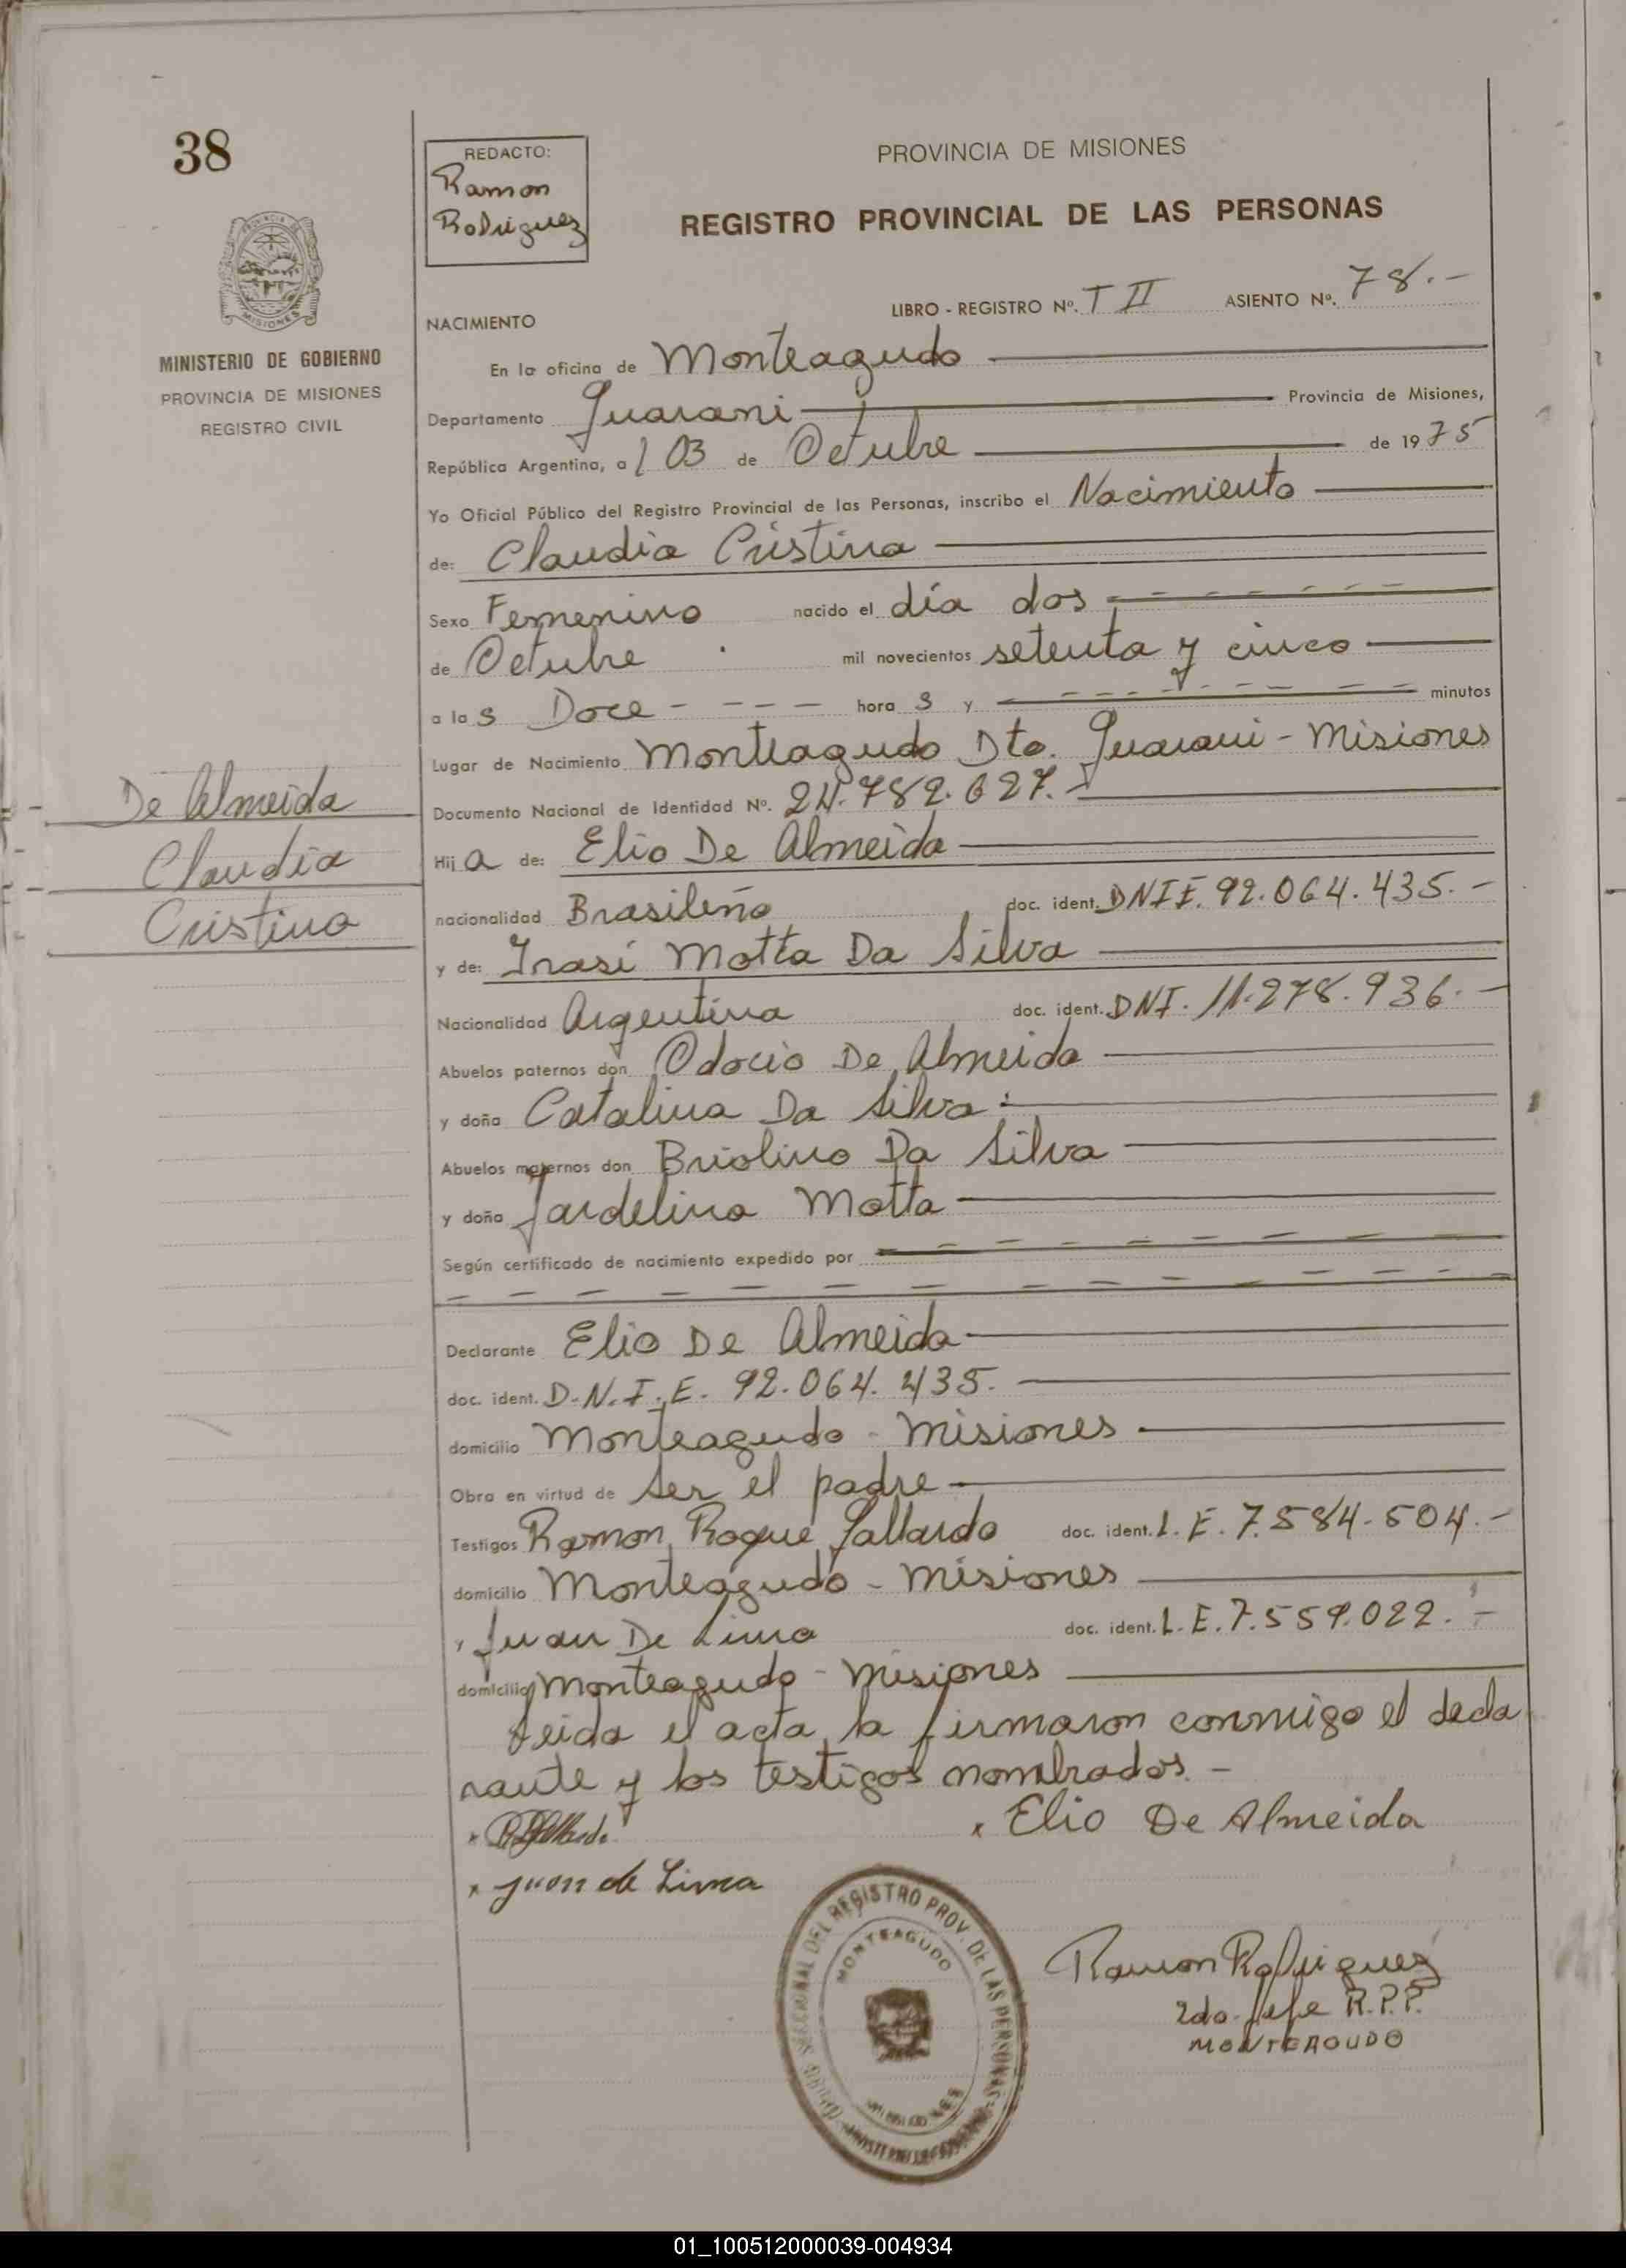 38
REDACTO:
Ramon
Rodriguez
PROVINCIA DE MISIONES
REGISTRO PROVINCIAL DE LAS PERSONAS
MISIONES
MINISTERIO DE GOBIERNO
PROVINCIA DE MISIONES
REGISTRO CIVIL
LIBRO - REGISTRO Nº. T II ASIENTO Nº. 78.-
NACIMIENTO
En la oficina de Monteagudo
Departamento Guarani Provincia de Misiones,
República Argentina, a 03 de Octubre de 1975
Yo Oficial Público del Registro Provincial de las Personas, inscribo el Nacimiento
de: Claudia Cristina
Sexo Femenino nacido el día dos
de Octubre mil novecientos setenta y cinco
a las Doce - - - - hora s y minutos
Lugar de Nacimiento Monteagudo Dto. Guarani - Misiones
De Almeida
Claudia
Cristina
Documento Nacional de Identidad Nº. 24.782.627.-
Hija de: Elio De Almeida
nacionalidad Brasileño doc. ident. DNIE. 92.064.435.-
y de: Irasi Motta Da Silva
Nacionalidad Argentina doc. ident. DNI. 11.278.936.-
Abuelos paternos don Odocio De Almeida
y doña Catalina Da Silva
Abuelos maternos don Briolino Da Silva
y doña Jardelina Motta
Según certificado de nacimiento expedido por
Declarante Elio De Almeida
doc. ident. D.N.I.E. 92.064.435.
domicilio Monteagudo - Misiones
Obra en virtud de ser el padre
Testigos Ramon Roque Gallardo doc. ident. L.E. 7.584.504.-
domicilio Monteagudo - Misiones
y Juan De Lima doc. ident. L.E. 7.559.022.-
domicilio Monteagudo - Misiones
Leida el acta, la firmaron conmigo el decla
rante y los testigos nombrados.-
x Elio De Almeida
x juan de Lima
SECCIONAL DEL REGISTRO PROV. DE LAS PERSONAS
MONTEAGUDO
MISIONES
Ramon Rodriguez
2do. Jefe R.P.P.
MONTEAGUDO
01_100512000039-004934